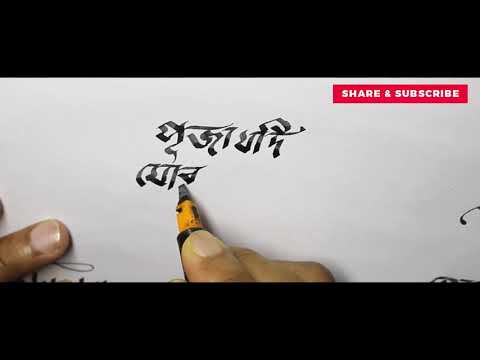 SHARE & SUBSCRIBE
পূজা যদি
যৌব